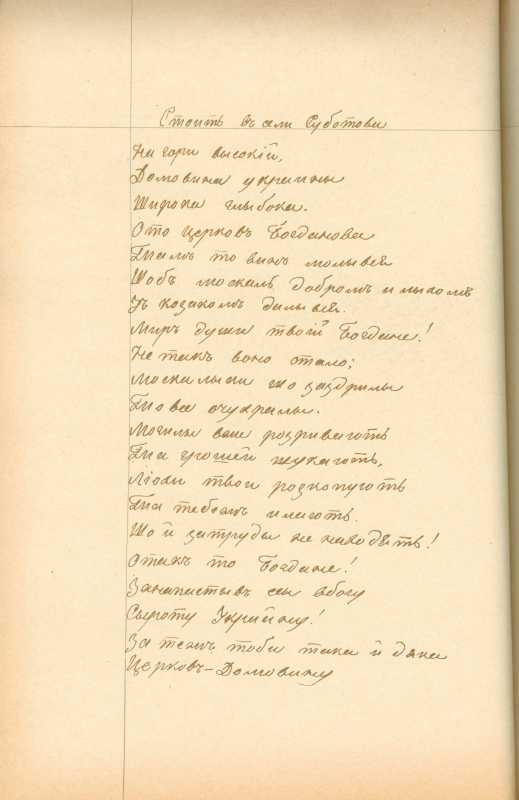 Стоить въ сели Суботови
На гори высокій,
Домовина украины
Широка глыбока.
Ото церковъ Богданова
Тамъ то винъ молывся
Шобъ москаль добромъ и лыхомъ
Зъ козакомъ дилывся.
Миръ души твоій Богдане!
Не такъ воно стало;
Москалыки що заздрилы
То все очухралы.
Могилы вже розривають
Та грошей шукають,
Лёхи твои розкопують
Та тебежъ илають.
Шо й за труды не находять!
Отакъ то Богдане!
Занапастывъ сы вбогу
Сыроту Украйину!
За тежъ тоби така й дяка
Церковъ-Домовину